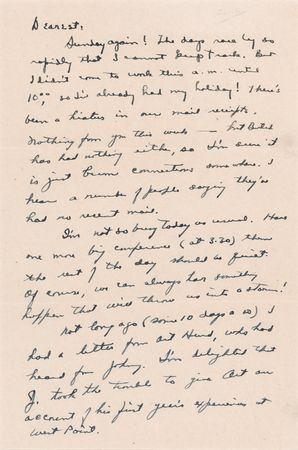 Dearest:
Sunday again! The days race by so
rapidly that I cannot keep track. But
I didn't come to work this a.m. until
10:00, so I've already had my holiday! There's
been a hiatus in our mail receipts.
Nothing from you this week — but Butch
has had nothing either, so I'm sure it
is just bum connections somewhere. I
hear a number of people saying they've
had no recent mail.
I'm not so busy today as usual. Have
one more big conference (at 3:30) then
the rest of the day should be quiet.
Of course, we can always have something
happen that will throw us into a storm!
Not long ago (some 10 days ago) I
had a letter from Art Hurd, who had
heard from Johnny. I'm delighted that
J. took the trouble to give Art an
account of his first year's experiences at
West Point.